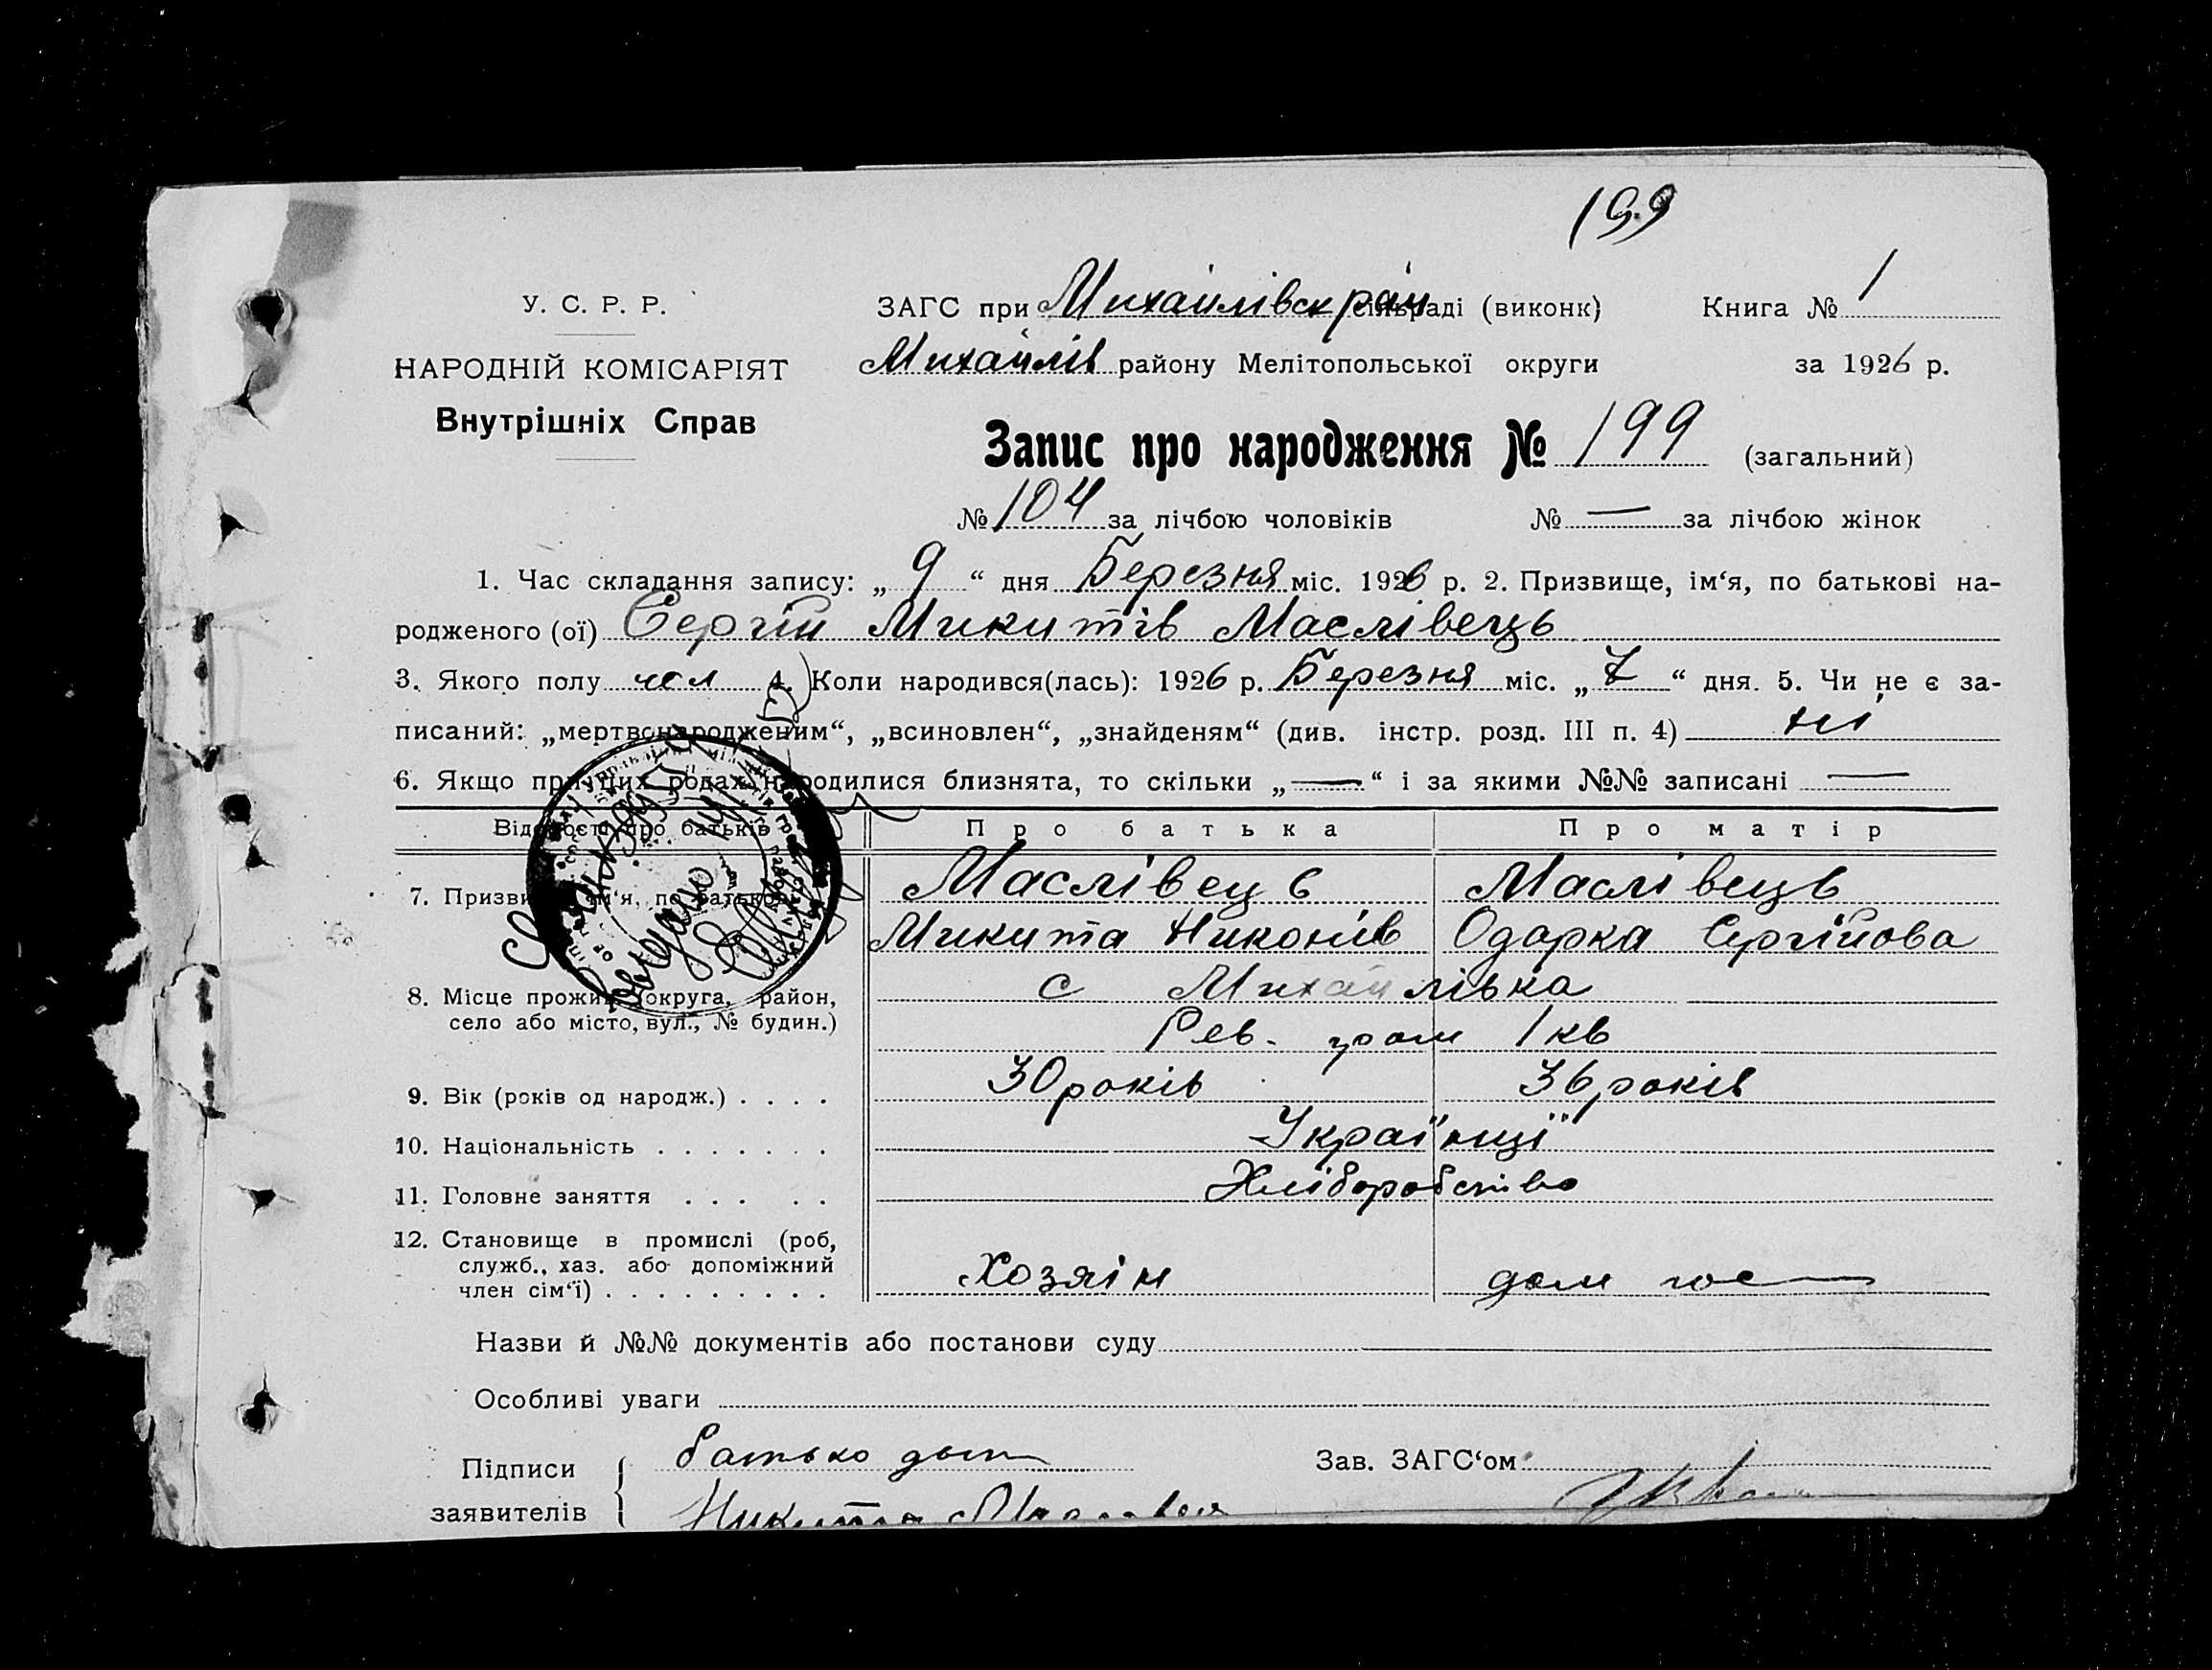 199
У. С. Р. Р.
НАРОДНІЙ КОМІСАРІЯТ
Внутрішніх Справ
ЗАГС при Михайлівск рай сільраді (виконк) Книга № 1
Михайлів району Мелітопольської округи за 1926 р.
Запис про народження № 199 (загальний)
№ 104 за лічбою чоловіків № — за лічбою жінок
1. Час складання запису: „ 9 “ дня Березня міс. 1926 р. 2. Призвище, ім‘я, по батькові на-
родженого (ої) Сергій Микитів Маслівець
3. Якого полу чол 4. Коли народився(лась): 1926 р. Березня міс. „ 7 “ дня. 5. Чи не є за-
писаний: „мертвонародженим“, „всиновлен“, „знайденям“ (див. інстр. розд. III п. 4) ні
6. Якщо при цих родах народилися близнята, то скільки „ — “ і за якими №№ записані —
Відомості про батьків Про батька Про матір
7. Призвище, ім‘я, по батькові Маслівець Маслівець
Микита Никонів Одарка Сергійова
8. Місце прожив. (округа, район, с Михайлівка
село або місто, вул., № будин.) Рев. гром 1 кв
9. Вік (років од народж.) . . . . 30 років 36 років
10. Національність . . . . . . . Українці
11. Головне заняття . . . . . Хліборобство
12. Становище в промислі (роб,
служб., хаз. або допоміжний
член сім‘ї) . . . . . . . . . Хозяін дом гос
Назви й №№ документів або постанови суду
Особливі уваги
Підписи батько дит Зав. ЗАГС‘ом
заявителів Никита